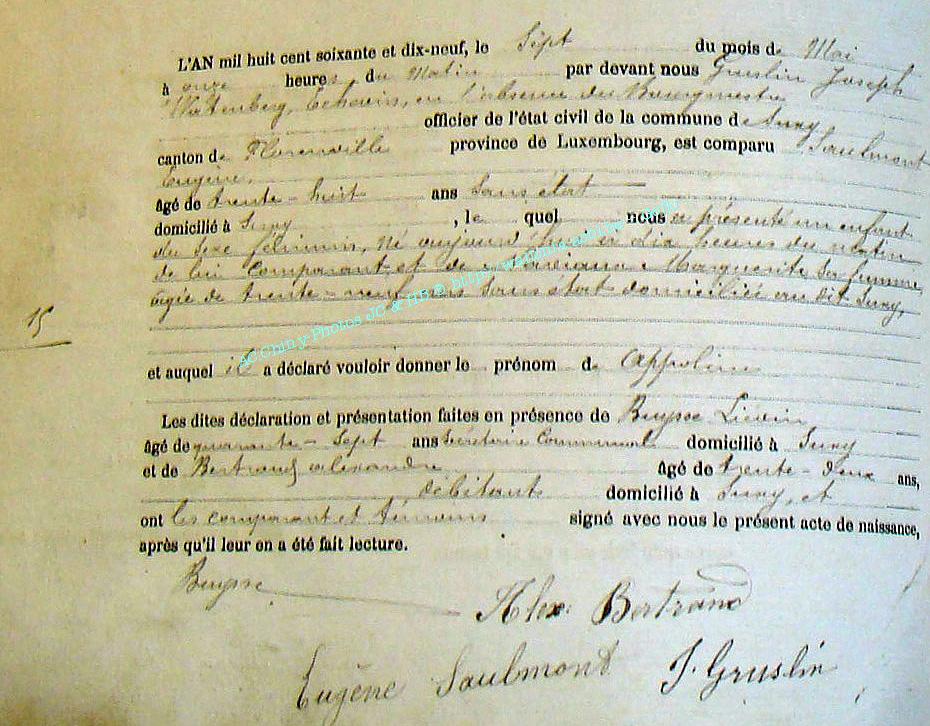 L'AN mil huit cent soixante et dix-neuf, le Sept du mois de Mai
à onze heures du Matin par devant nous Gruslin Joseph
Echevin, en l'absence du Bourgmestre
officier de l'état civil de la commune de Suxy
canton de Florenville province de Luxembourg, est comparu Saulmont
Eugène,
âgé de trente-huit ans Sans état
domicilié à Suxy, le quel nous a présenté un enfant
du sexe féminin, né aujourd'hui à dix heures du matin
de lui comparant et de Marguerite, sa femme,
agée de trente-neuf ans sans état domiciliée au dit Suxy,
15
et auquel il a déclaré vouloir donner le prénom de Appoline
Les dites déclaration et présentation faites en présence de Buysse Liévin
âgé de quarante-sept ans Secrétaire Communal domicilié à Suxy
et de Bertrand Alexandre âgé de trente-deux ans,
débitant domicilié à Suxy, et
ont les comparant et témoins signé avec nous le présent acte de naissance,
après qu'il leur en a été fait lecture.
Buysse
Alex. Bertrand
Eugène Saulmont J. Gruslin
AC Chiny Photos JC & HB ©